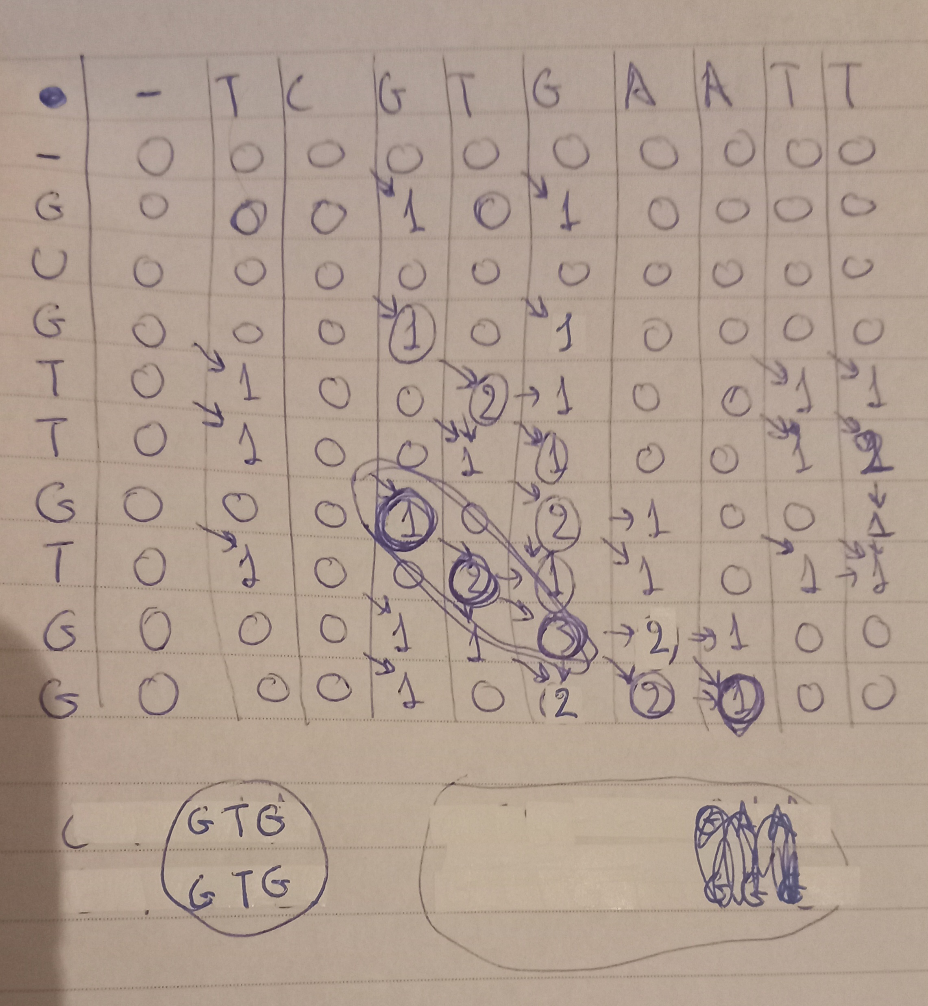 - T C G T G A A T T
- 0 0 0 0 0 0 0 0 0 0
G 0 0 0 →1 0 →1 0 0 0 0
U 0 0 0 0 0 0 0 0 0 0
G 0 0 0 →1 0 →1 0 0 0 0
T 0 →1 0 0 →2 →1 0 0 →1 →1
T 0 →1 0 0 1 1 0 0 1
G 0 0 0 1 0 2 →1 0 0 1
T 0 →1 0 0 2 →1 1 0 1 1
G 0 0 0 1 1 3 →2, →1 0 0
G 0 0 0 1 0 2 2 1 0 0
C GTG
GTG